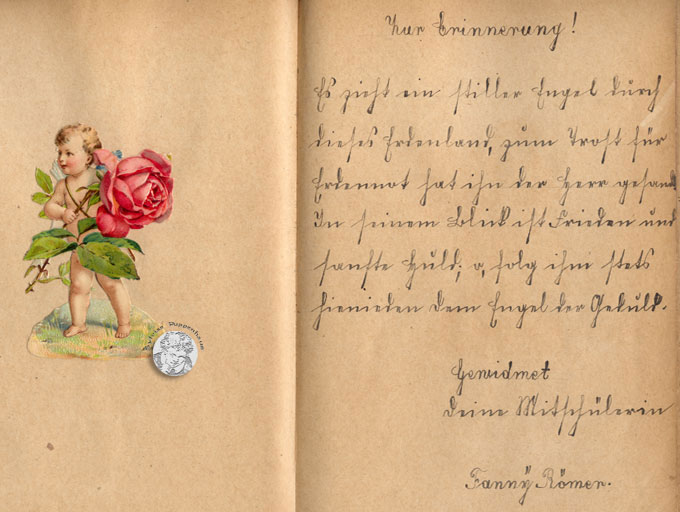 Zur Erinnerung!
Es zieht ein stiller Engel durch
dieses Erdenland, zum Trost für
Erdennot hat ihn der Herr gesand
In seinem Blick ist Frieden und
sanfte Huld; o, folg ihm stets
hienieden dem Engel der Geduld.
Gewidmet
Deine Mitschülerin
Fanny Römer.
Puppenhaus